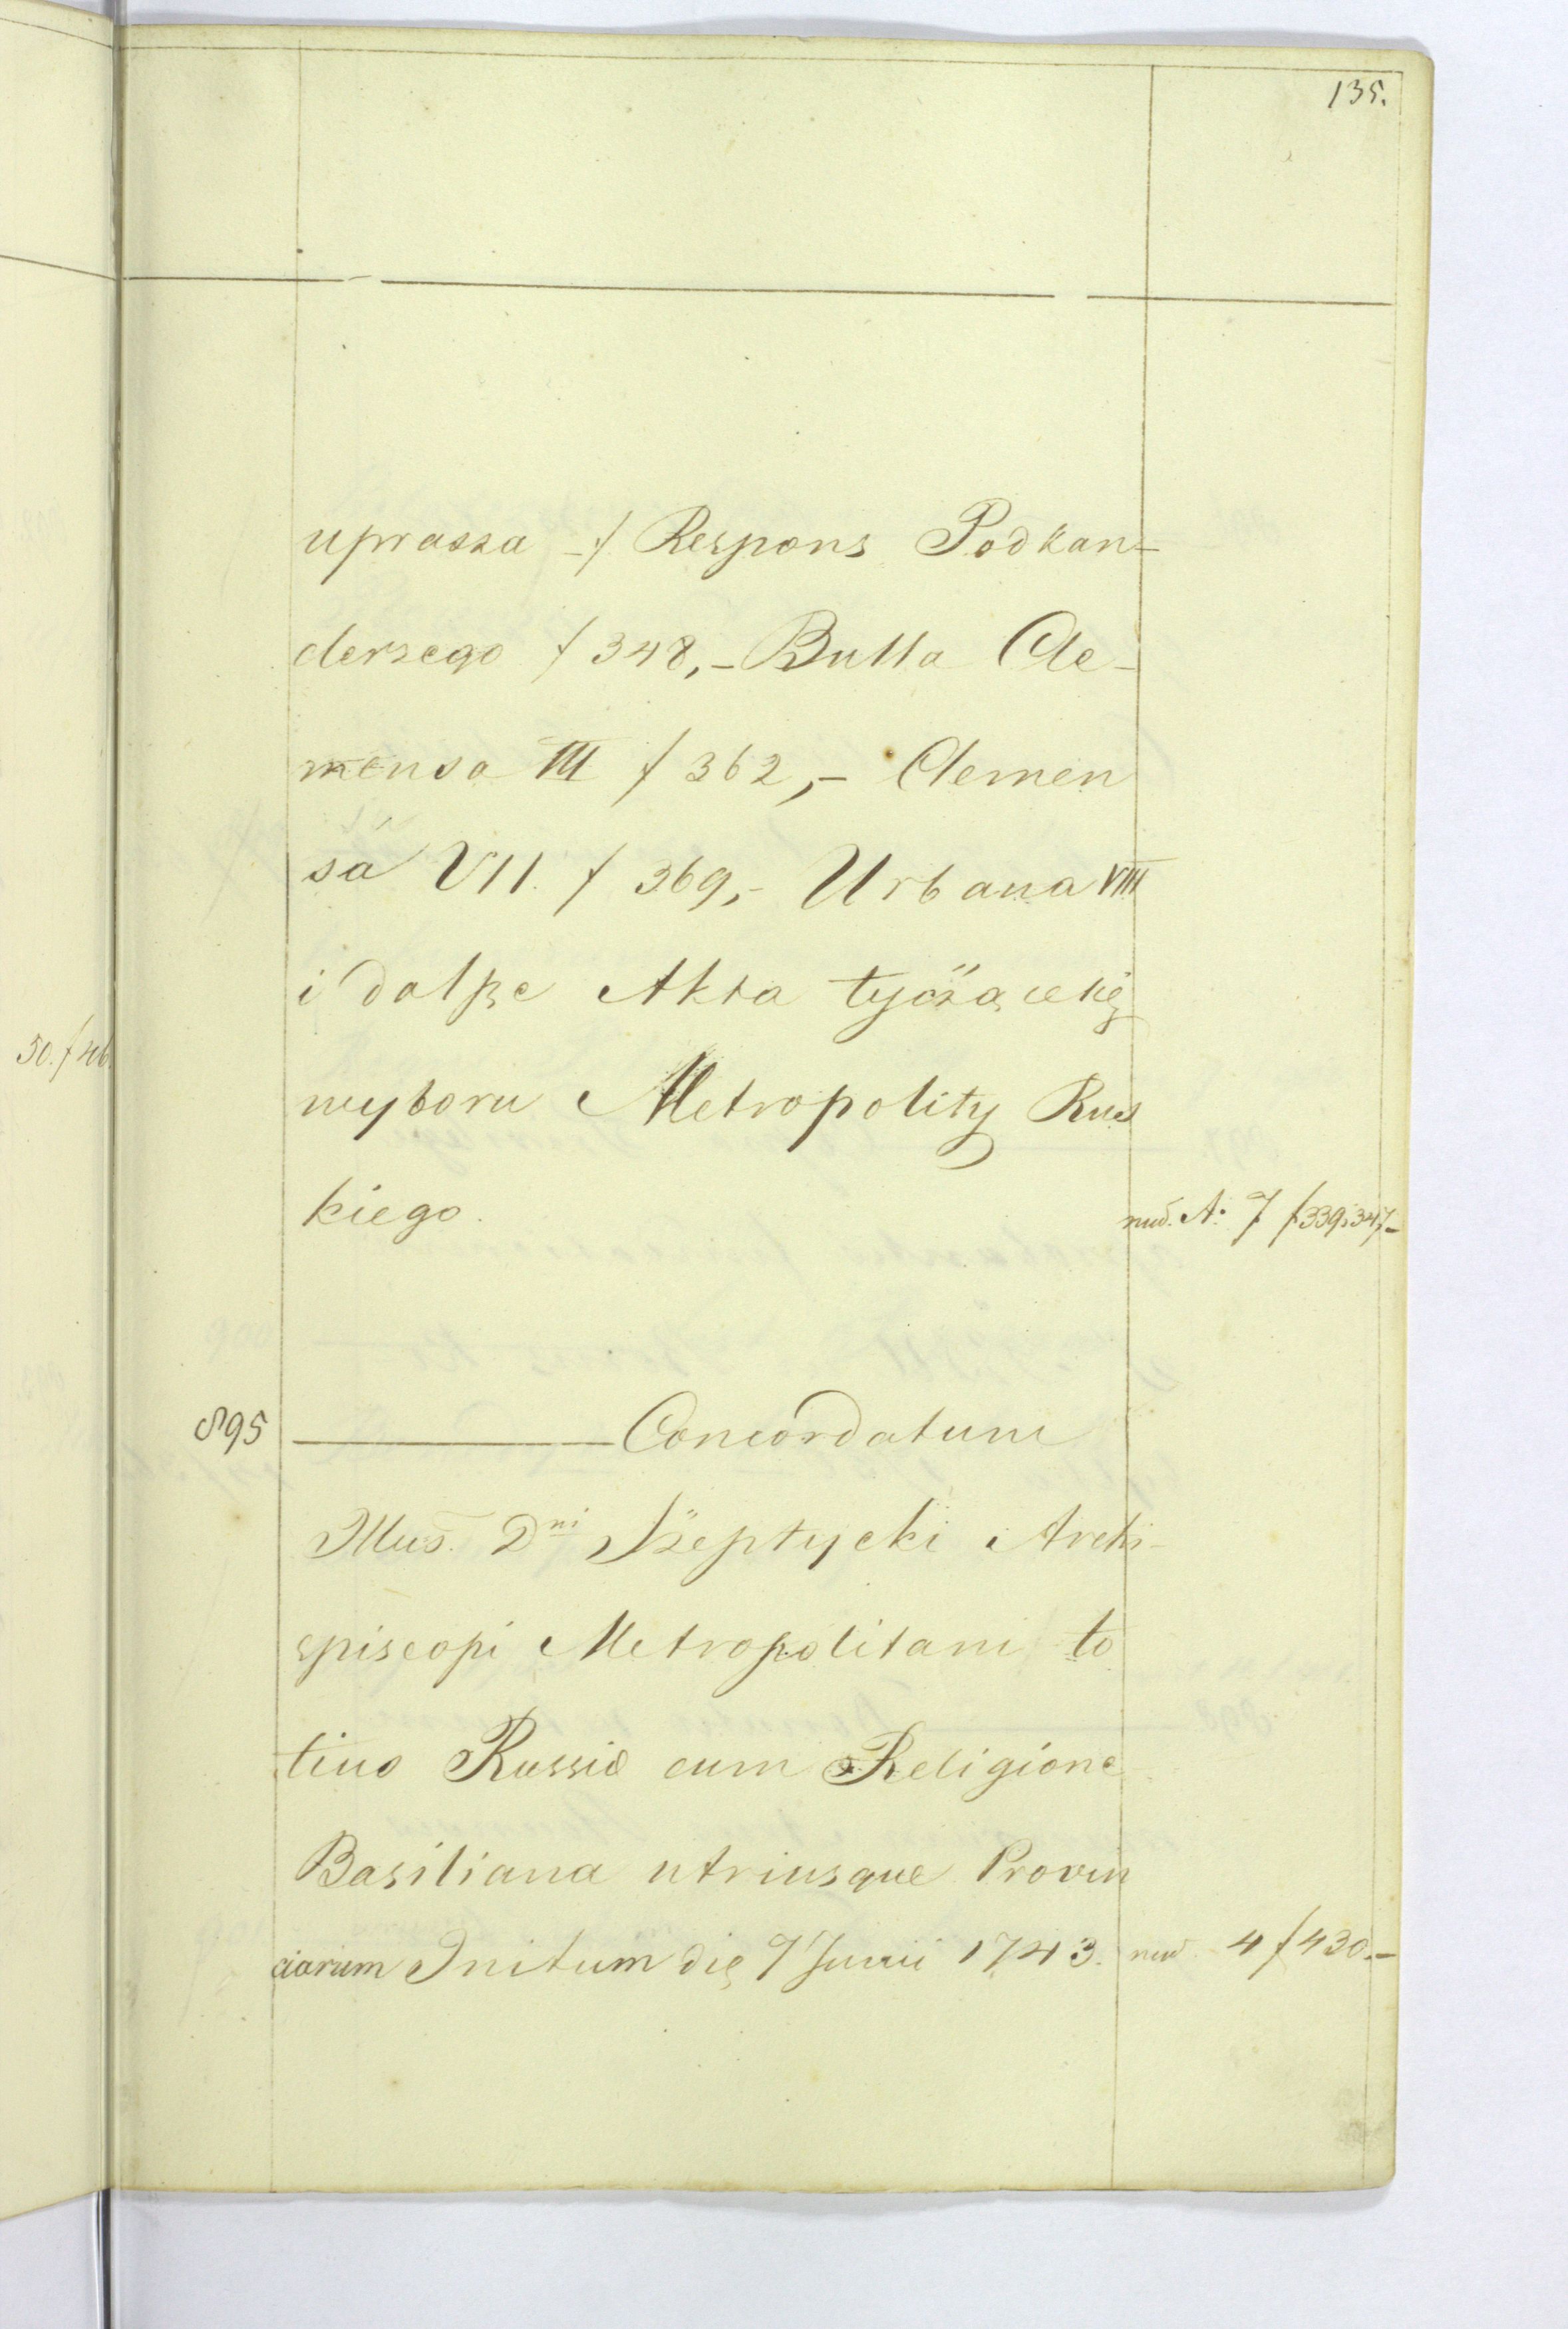 135.
uprasza -/ Respons Podkan-
clerzego f 348,- Bulla Cle-
mensa III f 362,- Clemen
sa VII. f 369,- Urbana VIII
i dalsze Akta tyczące się
wyboru Metropolity Rus
kiego. nud. A: 7 f 339, 347,-
50. f 406.
895 Concordatum
Illus. Dni Szeptycki Archi-
episcopi Metropolitani to
tius Russiæ cum Religione
Basiliana utriusque Provin
ciarum Initum die 7 Junii 1743. nud. 4 f 430.-